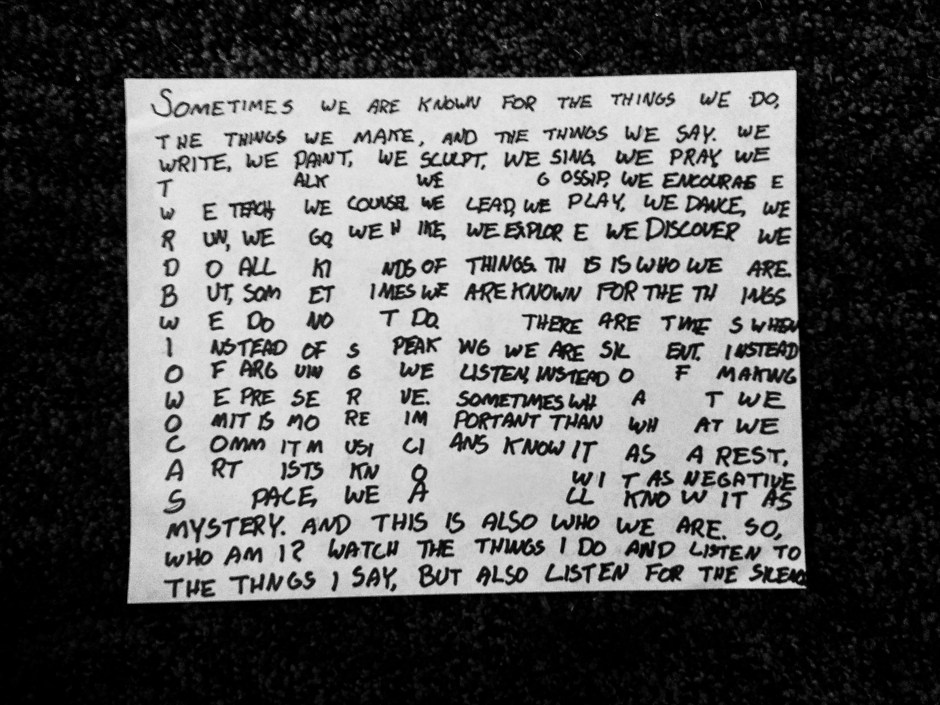 SOMETIMES WE ARE KNOWN FOR THE THINGS WE DO,
THE THINGS WE MAKE, AND THE THINGS WE SAY. WE
WRITE, WE PAINT, WE SCULPT, WE SING, WE PRAY, WE
T ALK WE G OSSIP, WE ENCOURAG E
W E TEACH WE COUNSEL WE LEAD, WE PLAY, WE DANCE, WE
R UN, WE GO, WE H IKE, WE EXPLOR E WE DISCOVER WE
D O ALL KI NDS OF THINGS. TH IS IS WHO WE ARE.
B UT, SOM ET IMES WE ARE KNOWN FOR THE TH INGS
W E DO NO T DO. THERE ARE TIME S WHEN
I NSTEAD OF S PEAK ING WE ARE SIL ENT. INSTEAD
O F ARG UIN G WE LISTEN, INSTEAD O F MAKING
W E PRE SE R VE. SOMETIMES WH A T WE
O MIT IS MO RE IM PORTANT THAN WH AT WE
C OMM IT M USI CI ANS KNOW IT AS A REST,
A RT ISTS KN O W I T AS NEGATIVE
S PACE, WE A LL KNO W IT AS
MYSTERY. AND THIS IS ALSO WHO WE ARE. SO,
WHO AM I? WATCH THE THINGS I DO AND LISTEN TO
THE THNGS I SAY, BUT ALSO LISTEN FOR THE SILENCE